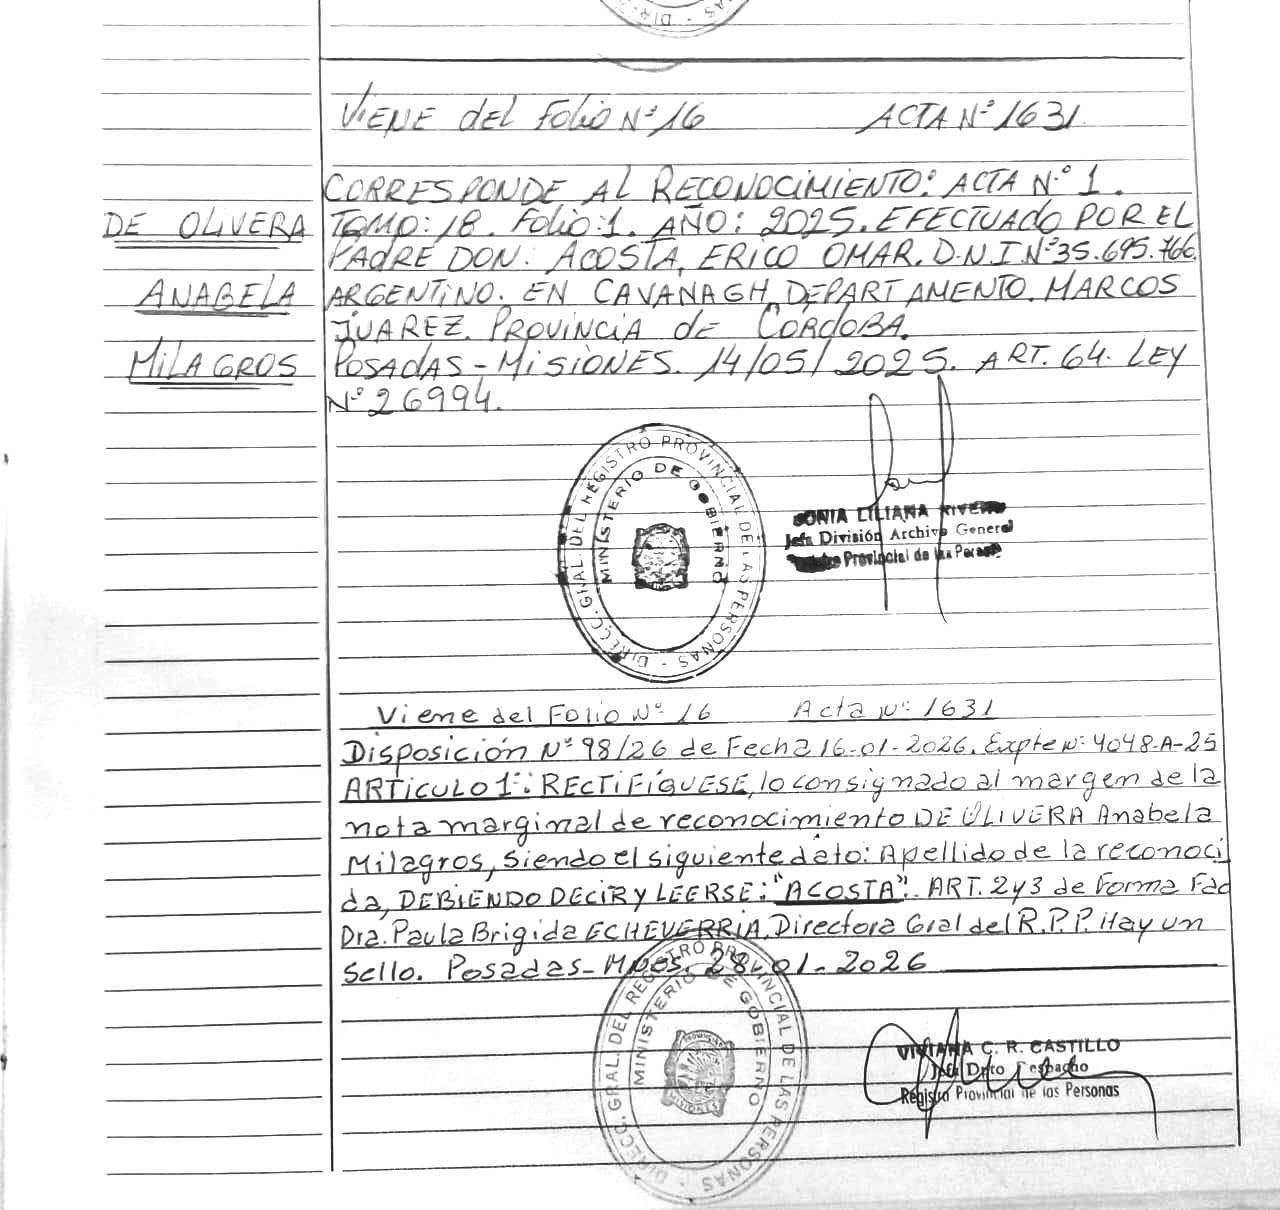 VIENE del Folio Nº 16 ACTA Nº 1631
CORRESPONDE AL RECONOCIMIENTO: ACTA Nº 1.
DE OLIVERA TOMO: 18. Folio: 1. AÑO: 2025. EFECTUADO POR EL
PADRE DON: ACOSTA, ERICO OMAR. D.N.I Nº 35.695.766.
ANABELA ARGENTINO. EN CAVANAGH, DEPARTAMENTO. MARCOS
JUAREZ. PROVINCIA de CÓRDOBA.
MILAGROS POSADAS - MISIONES. 14/05/2025. ART. 64. LEY
Nº 26994.
DIRECC. GRAL. DEL REGISTRO PROVINCIAL DE LAS PERSONAS -
MINISTERIO DE GOBIERNO
SONIA LILIANA
Jefa División Archivo General
Provincial de las
Viene del Folio Nº 16 Acta Nº 1631
Disposición Nº 98/26 de Fecha 16-01-2026. Expte Nº 4048-A-25
ARTICULO 1º: RECTIFÍQUESE, lo consignado al margen de la
nota marginal de reconocimiento DE OLIVERA Anabela
Milagros, siendo el siguiente dato: Apellido de la reconoci
da, DEBIENDO DECIR Y LEERSE: "ACOSTA". ART. 2 y 3 de Forma Fdo
Dra. Paula Brigida ECHEVERRIA. Directora Gral del R.P.P. Hay un
Sello. Posadas - Mnes. 28-01-2026
DIRECC. GRAL. DEL REGISTRO PROVINCIAL DE LAS PERSONAS -
MINISTERIO DE GOBIERNO
MISIONES
VIVIANA C. R. CASTILLO
Jefa Dpto Despacho
Registro Provincial de las Personas